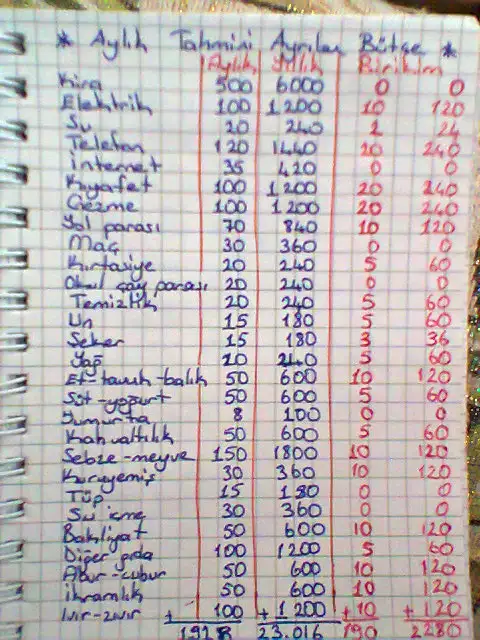 * Aylık Tahmini Ayrılan Bütçe *
Aylık Yıllık Birikim
Kira 500 6000 0 0
Elektrik 100 1200 10 120
Su 20 240 2 24
Telefon 120 1440 20 240
internet 35 420 0 0
Kıyafet 100 1200 20 240
Gezme 100 1200 20 240
Yol parası 70 840 10 120
Maç 30 360 0 0
Kırtasiye 20 240 5 60
Okul çay parası 20 240 0 0
Temizlik 20 240 5 60
Un 15 180 5 60
Şeker 15 180 3 36
Yağ 20 240 5 60
Et-tavuk-balık 50 600 10 120
Süt-yoğurt 50 600 5 60
Yumurta 8 100 0 0
Kahvaltılık 50 600 5 60
Sebze-meyve 150 1800 10 120
Kuruyemiş 30 360 10 120
Tüp 15 180 0 0
Su içme 30 360 0 0
Bakliyat 50 600 10 120
Diğer gıda 100 1200 5 60
Abur-cubur 50 600 10 120
ikramlık 50 600 10 120
Ivır-zıvır + 100 + 1200 + 10 + 120
1928 23.016 190 2280